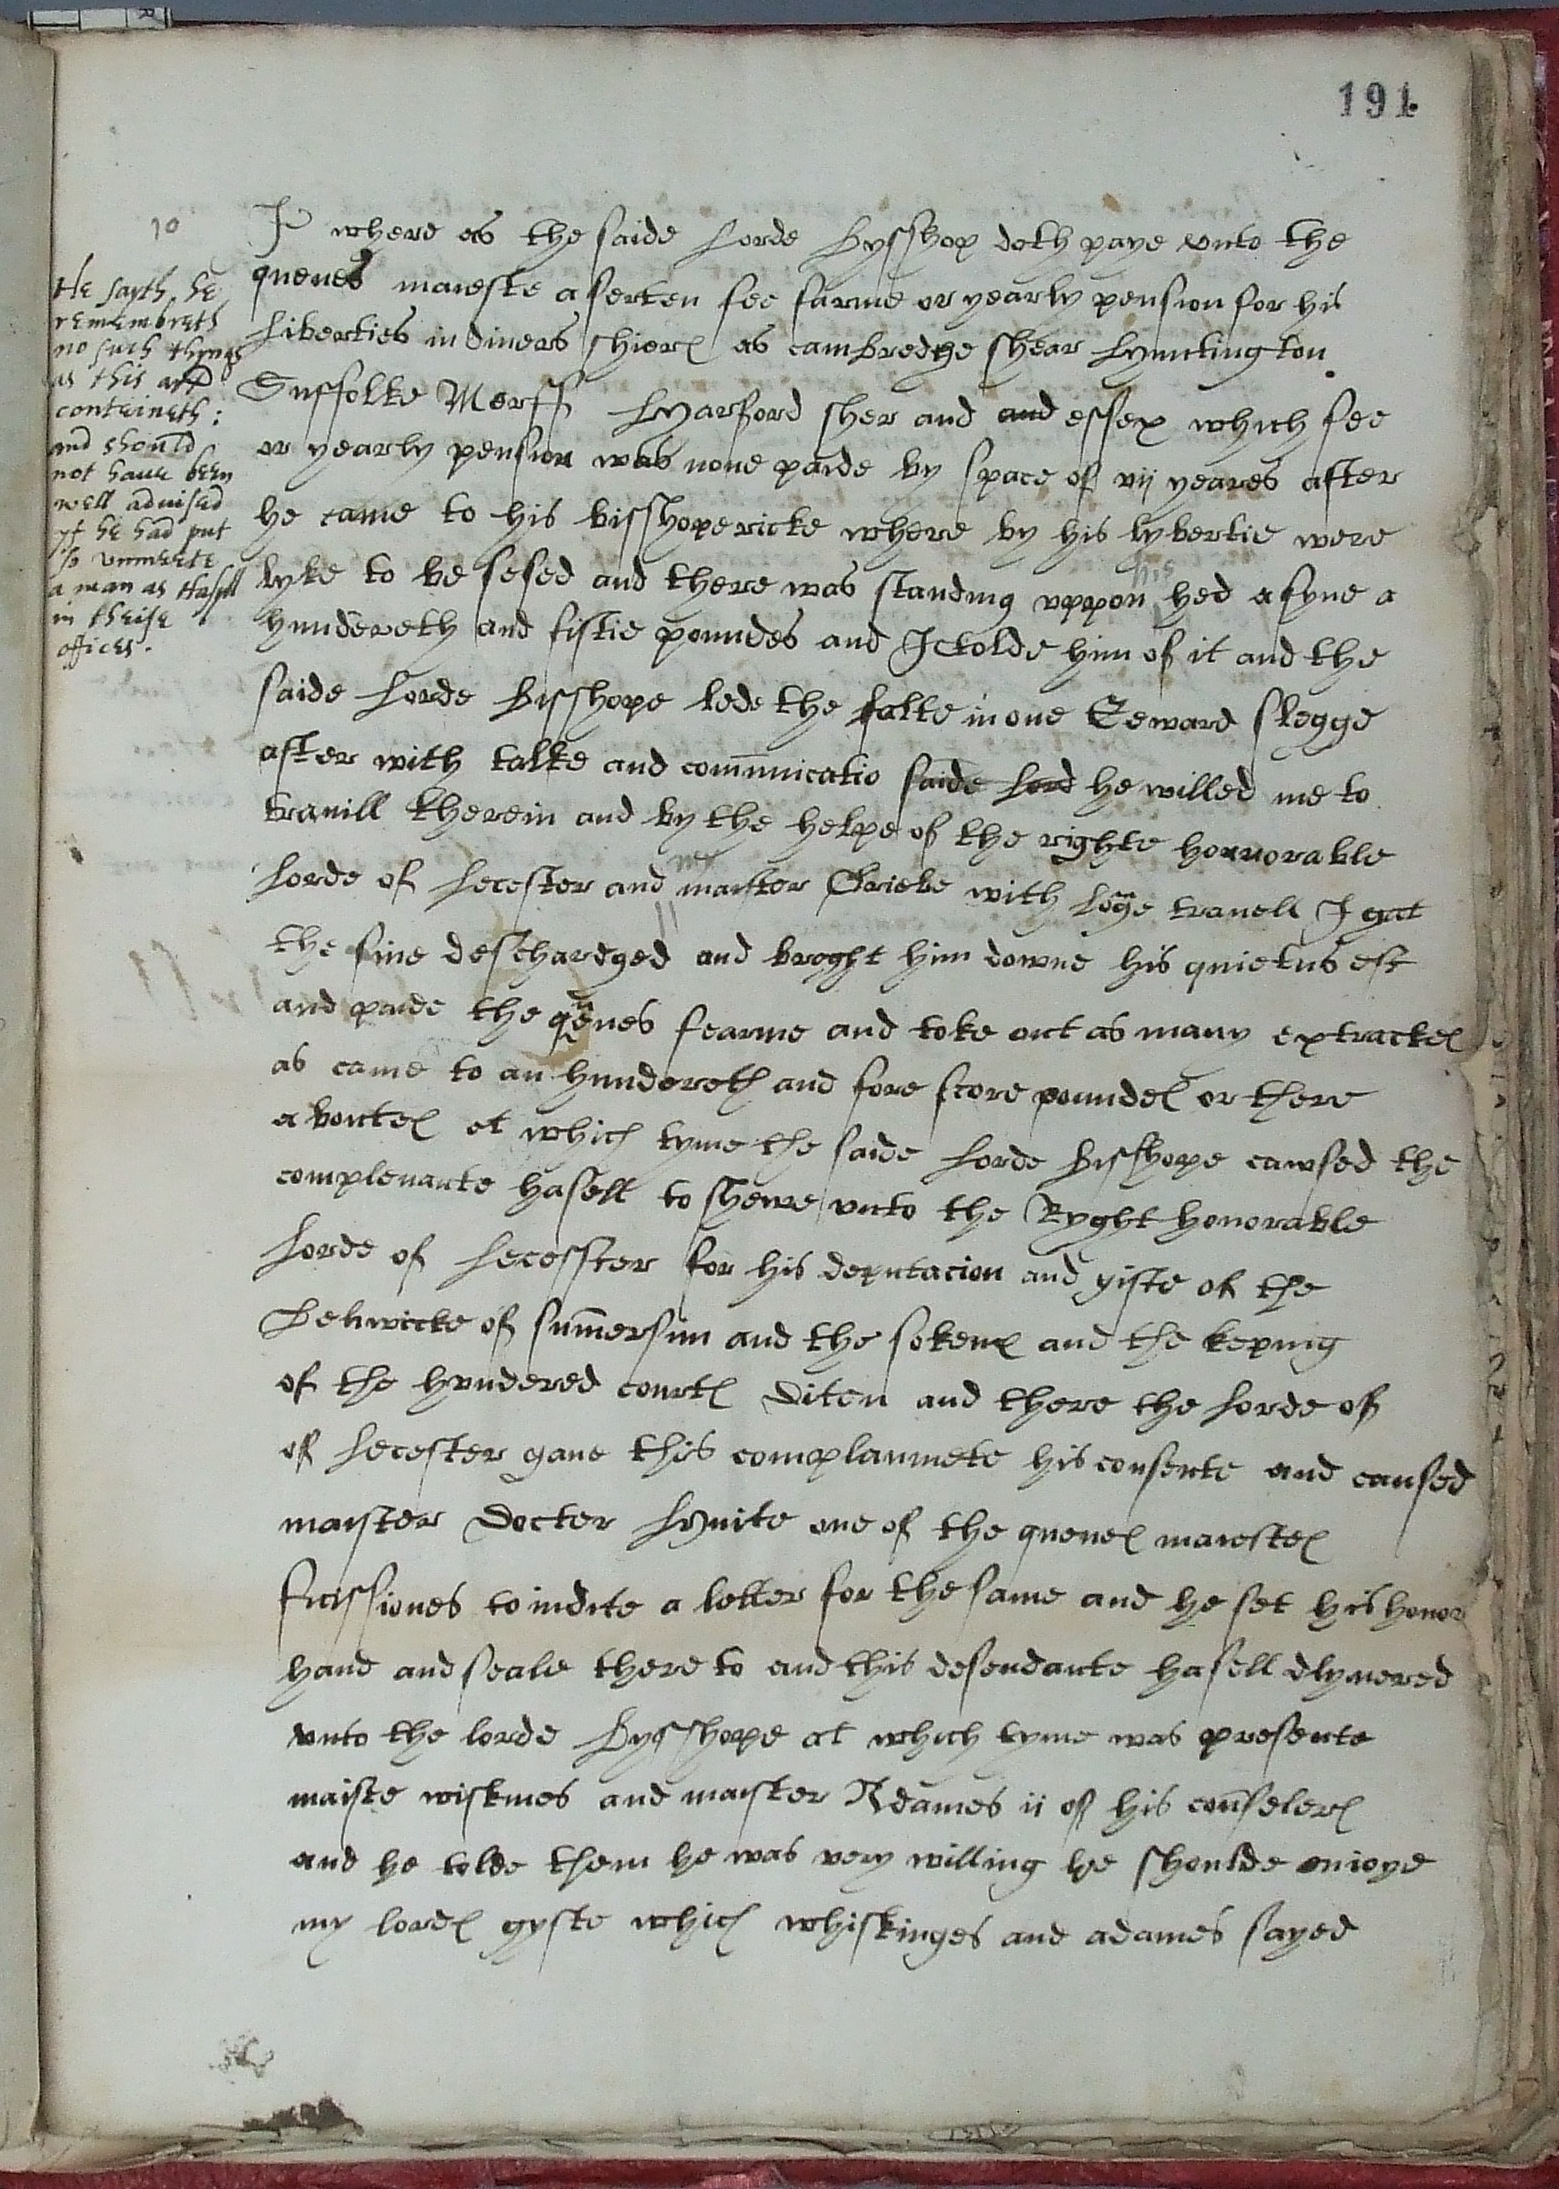 191
10
He sayth he
remembreth
no such thyngs
as this art
conteineth:
and should
not haue been
well aduised
yf he had put
so vnmeete
a man as Hasyll
in theise
offices.
It where as the saide Lorde Bysshop doth paye vnto the
quenes maieste a serten fee farme or yearly pension for his
Liberties in diuers shieres as cambredge shear Hunctington
Suffolke Norff Harford sher and and essex which fee
or yearly pension was none paide by space of vij yeares after
he came to his bisshopericke where by his lybertie were
lyke to be sesed and there was standing vppon his hed a fyne a
hundereth and fiftie poundes and I tolde him of it and the
saide Lorde Bisshope lede the falte in one Edward Slegge
after with talke and communicatio saide Lord he willed me to
trauill therein and by the helpe of the righte honnorable
Lorde of Lecester and maister with longe trauell I gat
the fine deschardged and broght him downe his quietus est
and paide the quenes fearme and toke out as many extrackes
as came to an hundereth and fore score poundes or there
a boutes at which tyme the saide Lorde Bisshope cawsed the
complenante hasell to shewe vnto the Ryght honorable
Lorde of Lecesster for his deputacion and gifte of the
Belywicke of summersim and the sokenes and the keping
of the hundered courtes Diten and there the Lorde of
of Lecester gaue this complainnete his consente and caused
maister Docter Hwite one of the quenes maiestes
ficissiones to indite a letter for the same and he set his honor
hand and seale there to and this defendante hasell dlyuered
vnto the lorde Bysshope at which tyme was presente
maiste wiskines and maister Adames ii of his counselers
and he tolde them he was very willing he shoulde enioye
my lordes gyfte which whiskinges and adames sayed